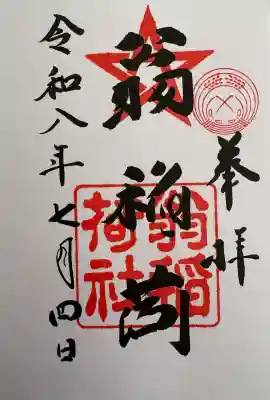 奉拝
翁稲荷
令和八年七月四日
翁稲
荷社